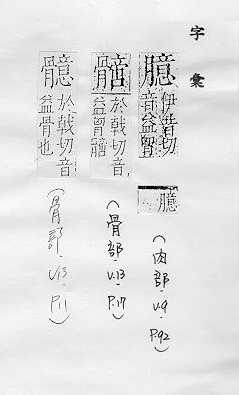 字彙
臆 伊昔切
音益胷
臆
(肉部.V.9 P.92)
於戟切音
益胷
(骨部.V.13 P.17)
於戟切音
益骨也
(骨部.V.13 P.11)